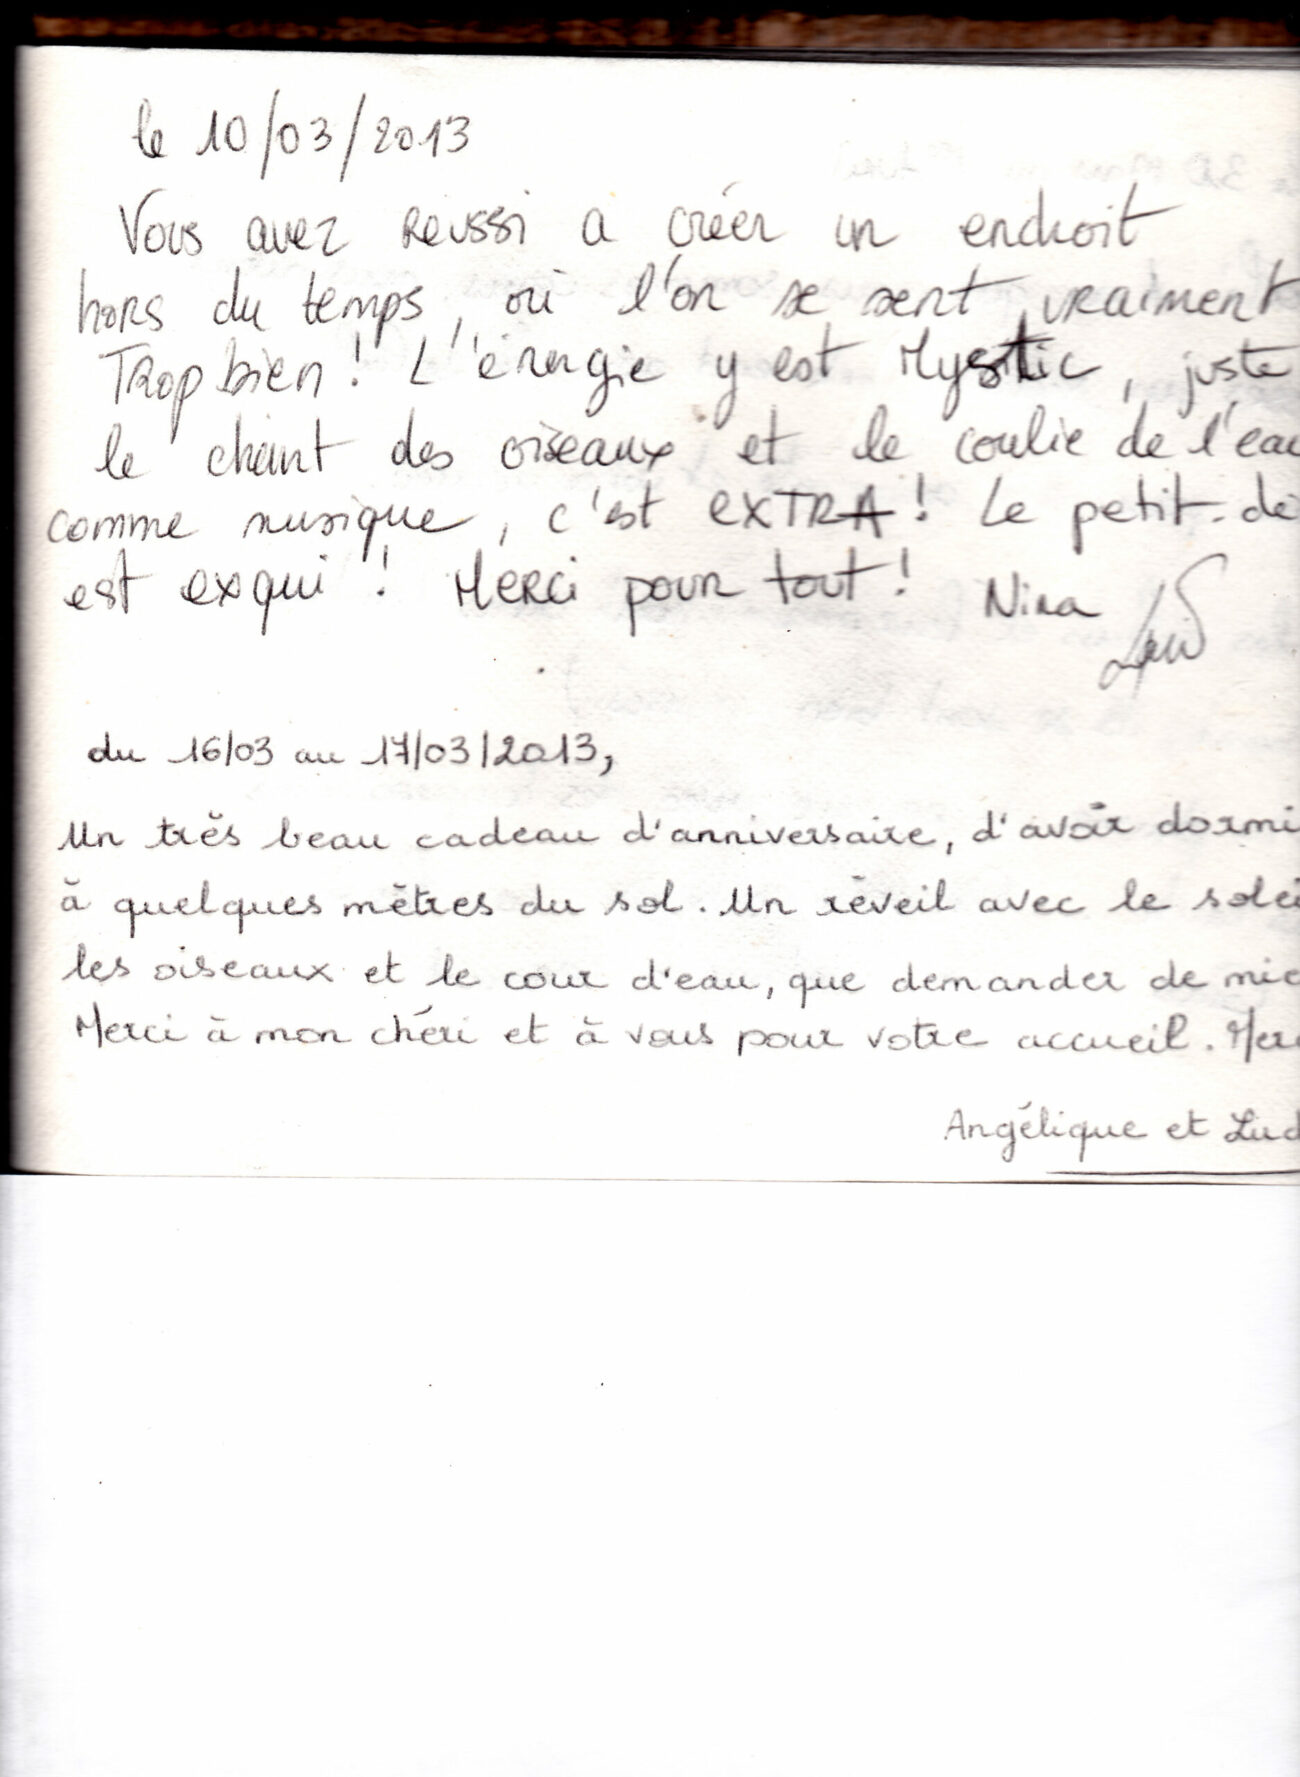 le 10/03/2013
Vous avez Reussi a créer un endroit
hors du temps, où l'on se sent vraiment
Trop bien ! L'énergie y est Mystic, juste
le chant des oiseaux et le coulie de l'eau
comme musique, c'est EXTRA ! Le petit-dé
est exqui ! Merci pour tout ! Nina
du 16/03 au 17/03/2013,
Un très beau cadeau d'anniversaire, d'avoir dormi
à quelques mètres du sol. Un réveil avec le solei
les oiseaux et le cour d'eau, que demander de mie
Merci à mon chéri et à vous pour votre accueil. Merc
Angélique et Lud